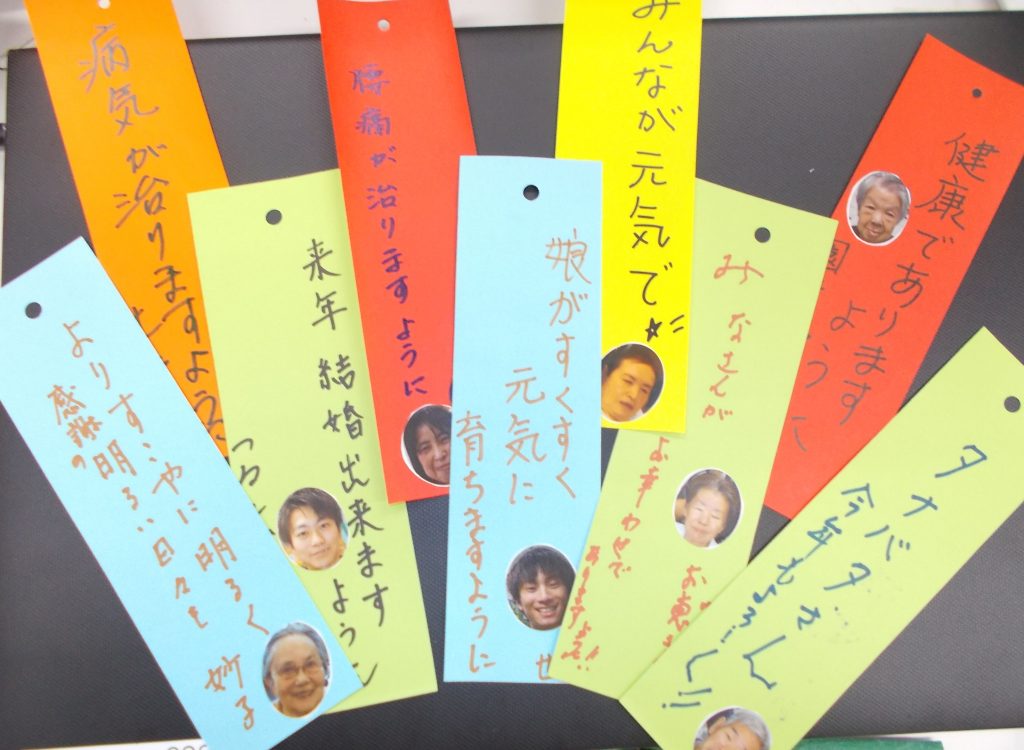 病気が治りますよう
来年 結婚出来ます
ように
腰痛が治りますように
みんなが元気で☆
健康であります
ように
よりすこやに明るく
感謝の明るい日々を
妙子
娘がすくすく
元気に
育ちますように
みなさんが
お幸わせで
ありますよぅに!!
タナバタさん
今年もよろしく!!